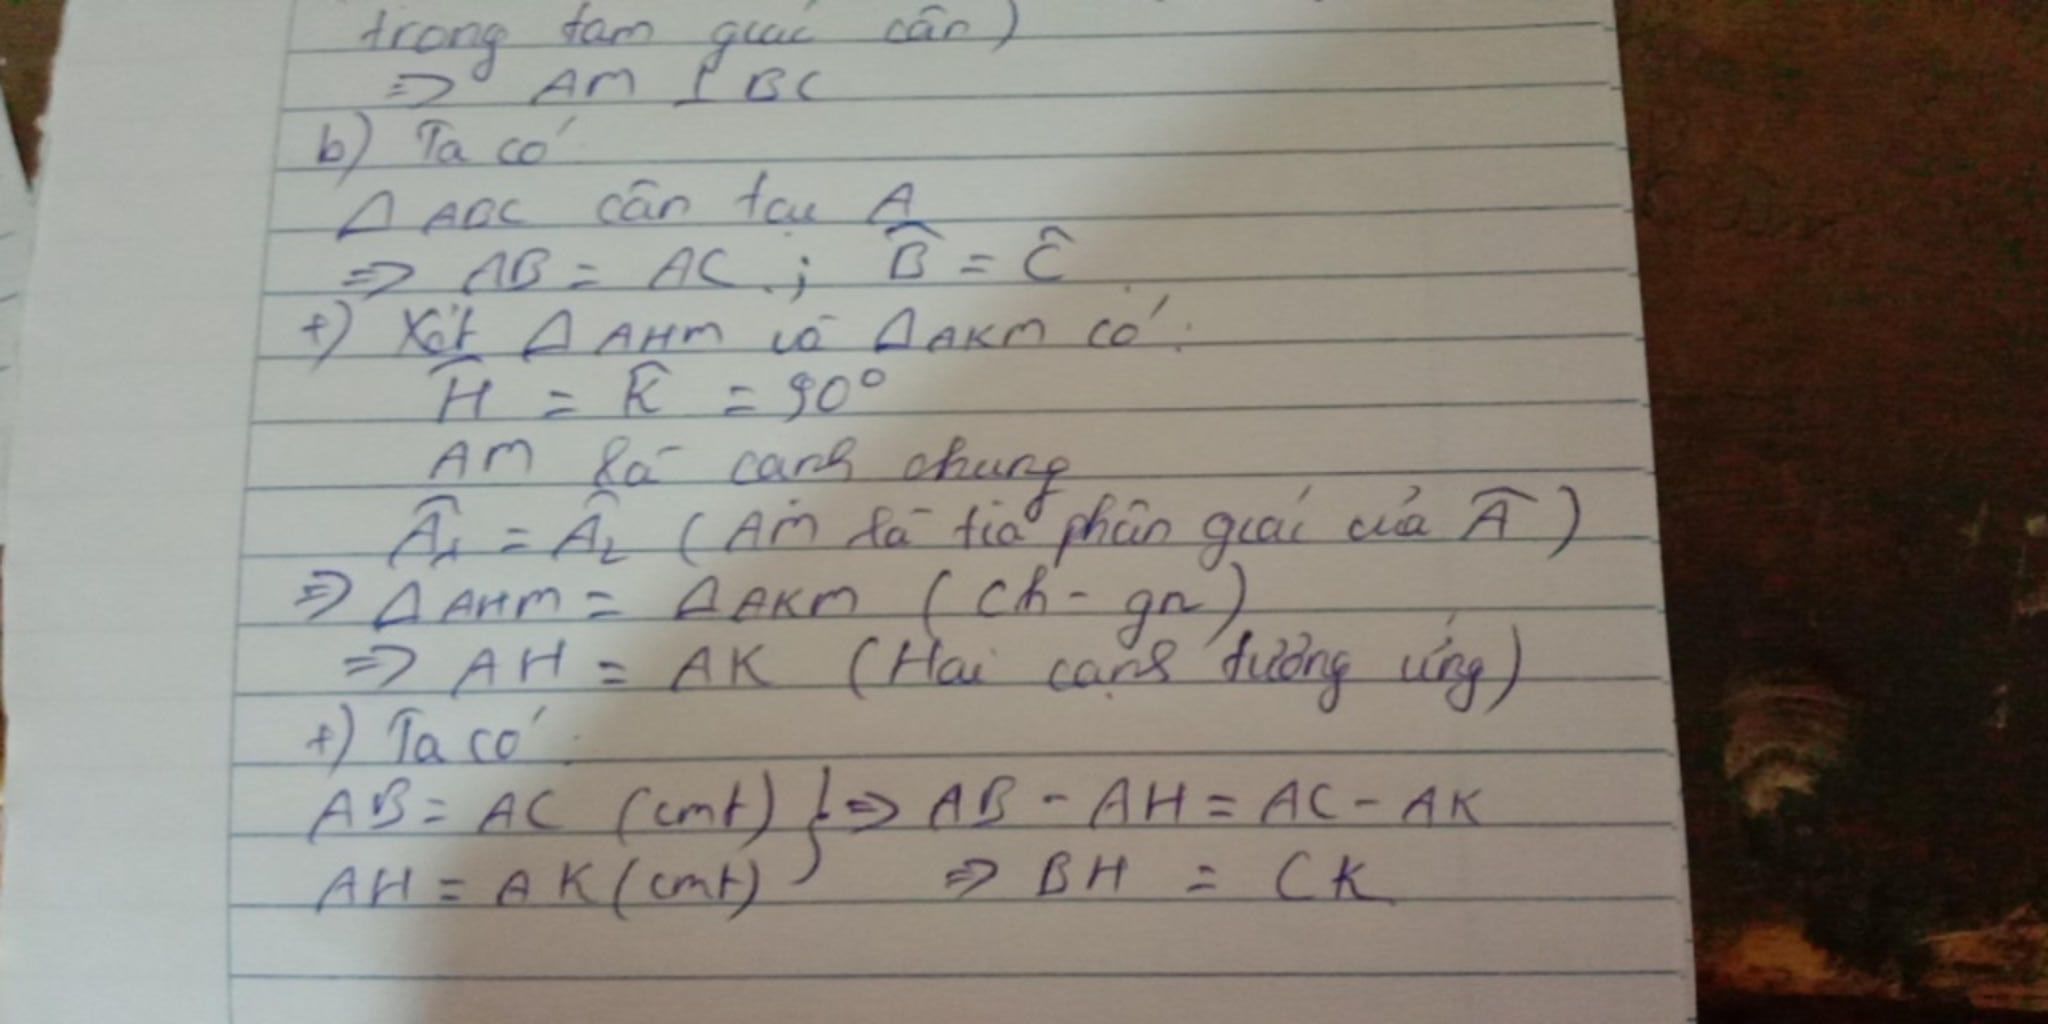 trong tam giác cân)
=> AM ⊥ BC
b) Ta có
Δ ABC cân tại A
=> AB = AC ; B̂ = Ĉ
+) Xét Δ AHM và Δ AKM có :
Ĥ = K̂ = 90°
AM là cạnh chung
Â₁ = Â₂ (AM là tia phân giác của Â)
=> Δ AHM = Δ AKM (ch - gn)
=> AH = AK (Hai cạnh tương ứng)
+) Ta có :
AB = AC (cmt) } => AB - AH = AC - AK
AH = AK (cmt) => BH = CK